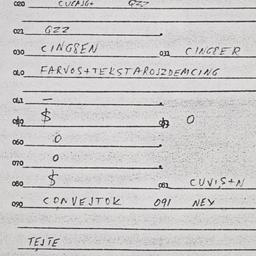 020 CUCAJG+ GZZ
021 GZZ
030 CINGSEN 031 CINGPER
040 FARVOS+TEKSTAROSZDEMCING
041 —
042 $ 043 0
060 0
070 0
080 $ 081 CUVIS+N
090 CONVEJTOK 091 NEY
TEJTE